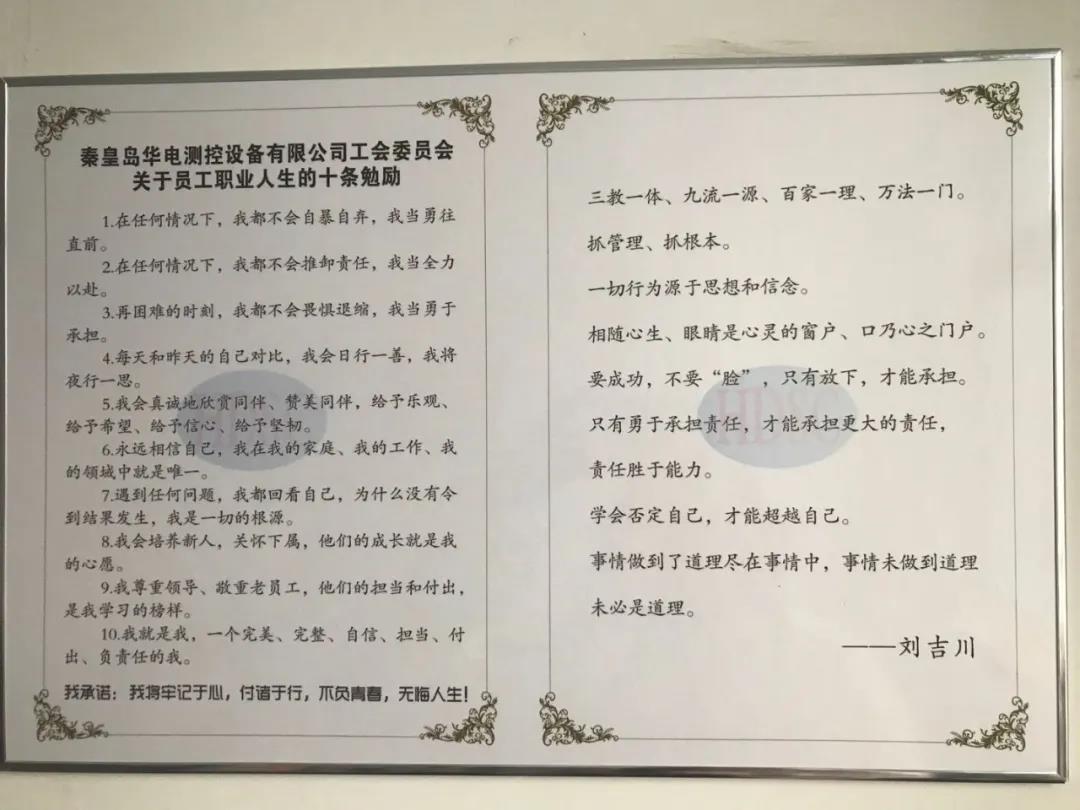 秦皇岛华电测控设备有限公司工会委员会
关于员工职业人生的十条勉励
1.在任何情况下，我都不会自暴自弃，我当勇往
直前。
2.在任何情况下，我都不会推卸责任，我当全力
以赴。
3.再困难的时刻，我都不会畏惧退缩，我当勇于
承担。
4.每天和昨天的自己对比，我会日行一善，我将
夜行一思。
5.我会真诚地欣赏同伴、赞美同伴，给予乐观、
给予希望、给予信心、给予坚韧。
6.永远相信自己，我在我的家庭、我的工作、我
的领域中就是唯一。
7.遇到任何问题，我都回看自己，为什么没有令
到结果发生，我是一切的根源。
8.我会培养新人，关怀下属，他们的成长就是我
的心愿。
9.我尊重领导、敬重老员工，他们的担当和付出，
是我学习的榜样。
10.我就是我，一个完美、完整、自信、担当、付
出、负责任的我。
我承诺：我将牢记于心，付诸于行，不负青春，无悔人生！
三教一体、九流一源、百家一理、万法一门。
抓管理、抓根本。
一切行为源于思想和信念。
相随心生、眼睛是心灵的窗户、口乃心之门户。
要成功，不要“脸”，只有放下，才能承担。
只有勇于承担责任，才能承担更大的责任，
责任胜于能力。
学会否定自己，才能超越自己。
事情做到了道理尽在事情中，事情未做到道理
未必是道理。
——刘吉川
HDSC